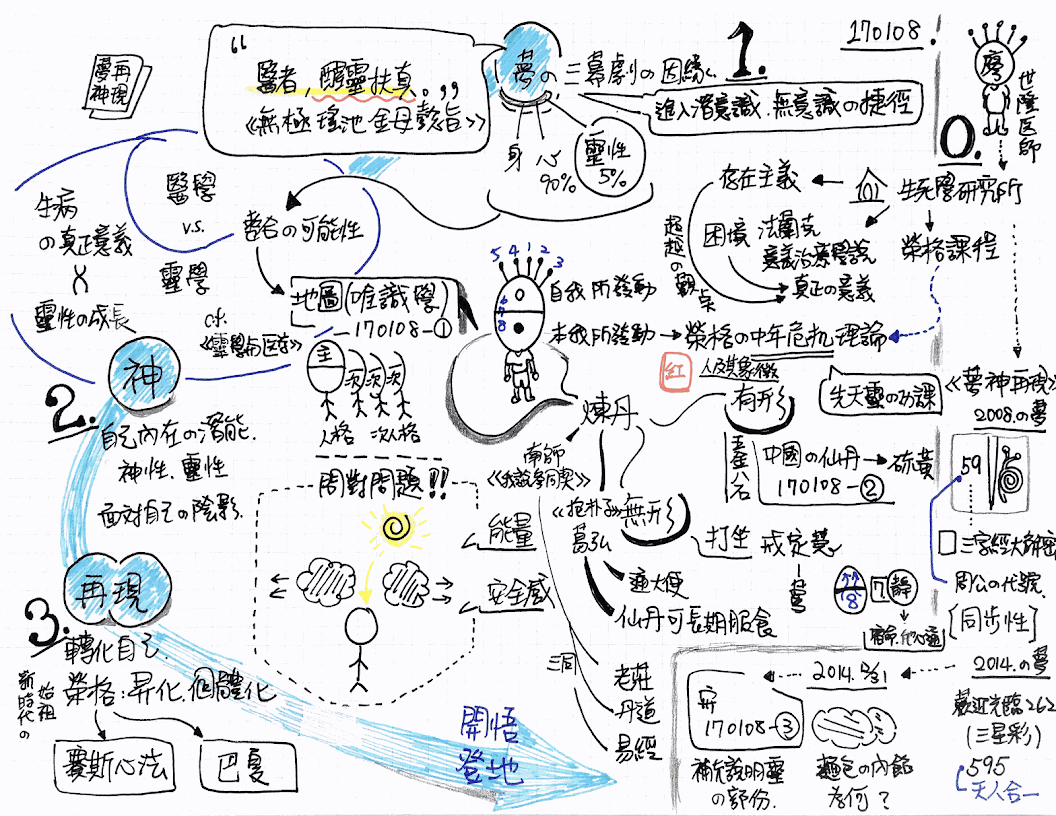 170108.
夢神再現
“
醫者 醒靈扶真。”
《無極瑤池金母懿旨》
夢の三幕劇の因緣
1.
進入潛意識.無意識の捷徑
身 心 90%
靈性 5%
廖
世隆医師
0.
生死學研究所
存在主義
困境 法蘭克
意義治療學說
真正の意義
超越の觀点
榮格課程
生病
の真正意義
靈性の成長
醫學
v.s.
靈學
cf.
《靈學与医学》
整合の可能性
地圖(唯識學)
170108-①
主 次 次 次
人格 次人格
5 4 1 2 3
6
7
8
自我所發動
本我所發動
榮格の中年危机理論
紅
人及其象徵
先天靈の功課
《夢神再現》
2008.の夢
59
三字經大解密
周公の代號
[同步性]
2014.の夢
262
(三星彩)
595
天人合一
2.
神
自己內在の潛能.
神性.靈性
面對自己の陰影.
問對問題!!
能量
安全感
煉丹
南師
《我說參同契》
《抱朴子》
葛弘
有形
中國の仙丹
硫黃
170108-②
無形
打坐
戒定慧
通大便
仙丹可長期服食
三同
老莊
丹道
易經
18
7
靜
3.
再現
轉化自己.
榮格:昇化.個體化
新時代の始祖
賽斯心法
巴夏
開悟
登地
170108-③
補充說明靈
の部份.
麵包の內餡
為何?